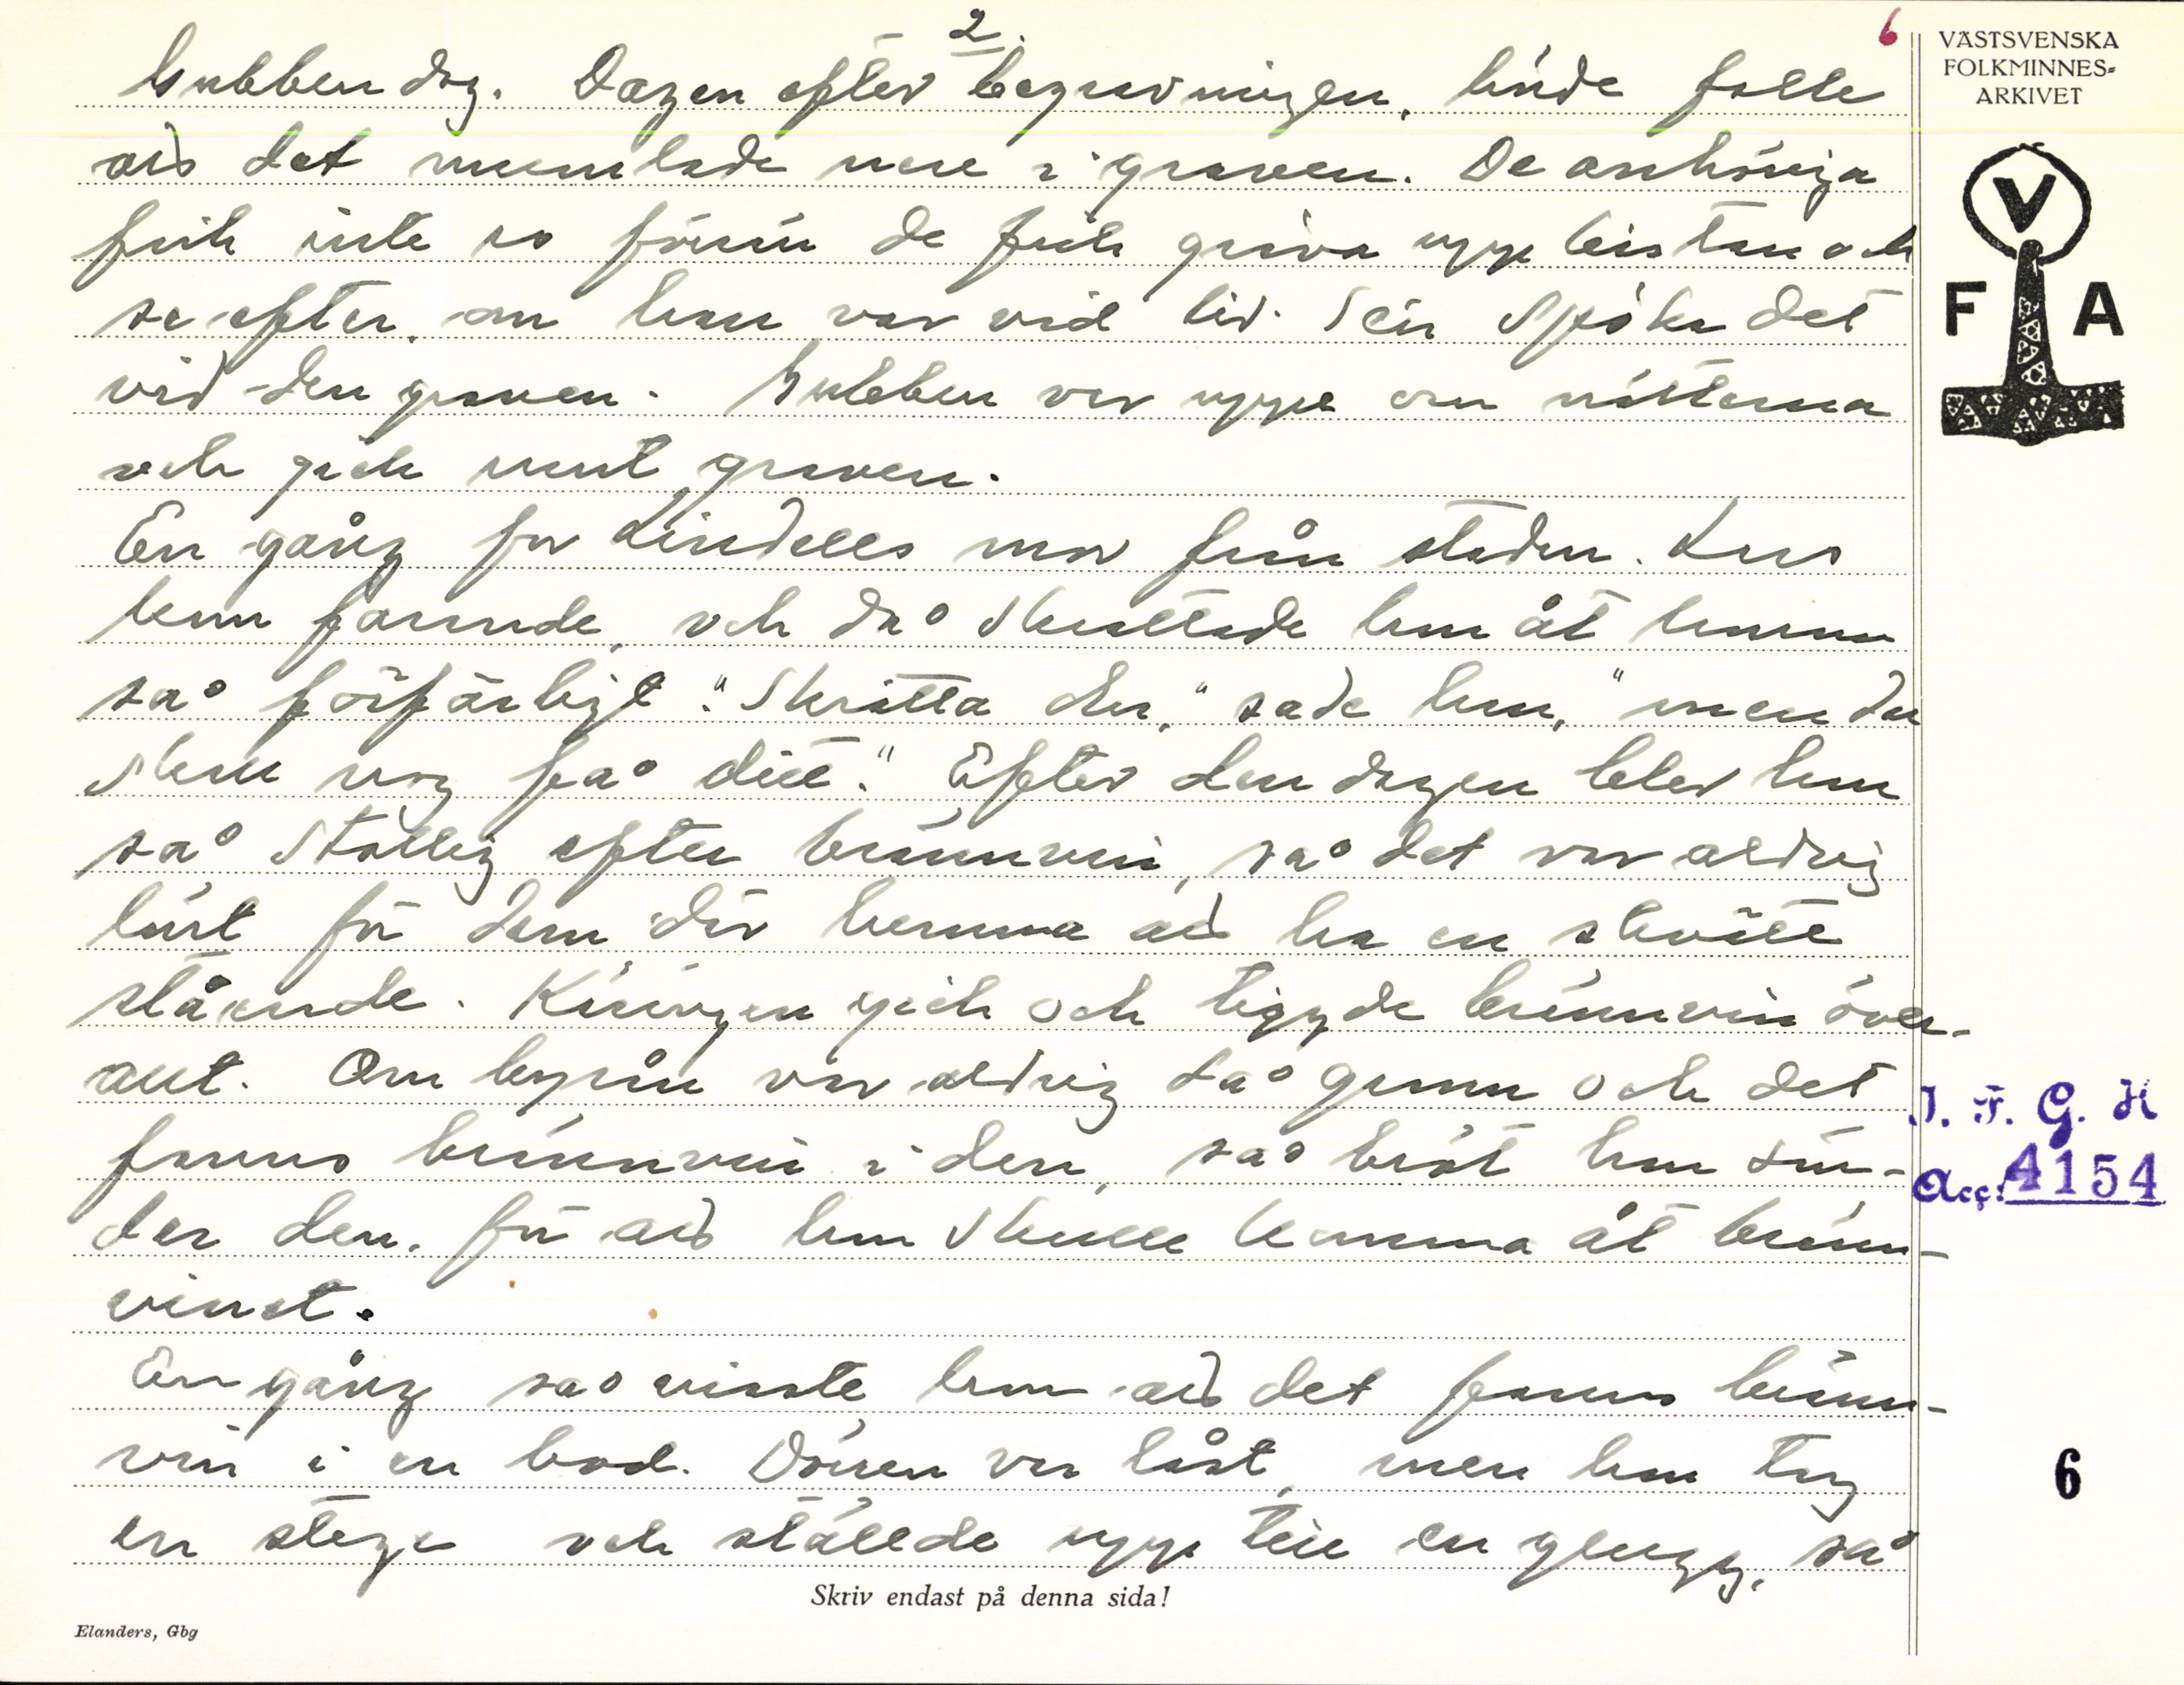 2.
6
VÄSTSVENSKA
FOLKMINNES-
ARKIVET
V
F A
Gubben dog. Dagen efter begravningen, hörde folk
att det mumlade nere i graven. De anhöriga
fick inte ro förrän de fick gräva upp kistan och
se efter, om han var vid liv. Sen spökade det
vid den graven. Gubben var uppe om nätterna
och gick runt graven.
En gång for Lindells mor från staden. Lars
kom farande, och då skrattade hon åt honom
så förfärligt. "Skratta du," sade han, "men du
skall nog få ditt." Efter den dagen blev hon
så stollig efter brännvin, så det var aldrig
lönt för dem där hemma att ha en skvätt
stående. Käringen gick och tiggde brännvin över-
allt. Om byrån var aldrig så grann och det
fanns brännvin i den, så bröt hon sön-
der den, för att hon skulle komma åt bränn-
vinet.
En gång så visste hon att det fanns bränn-
vin i en bod. Dörren var låst, men hon tog
en stege och ställde upp till en glugg, så
I. F. G. H
Acc: 4154
6
Skriv endast på denna sida!
Elanders, Gbg